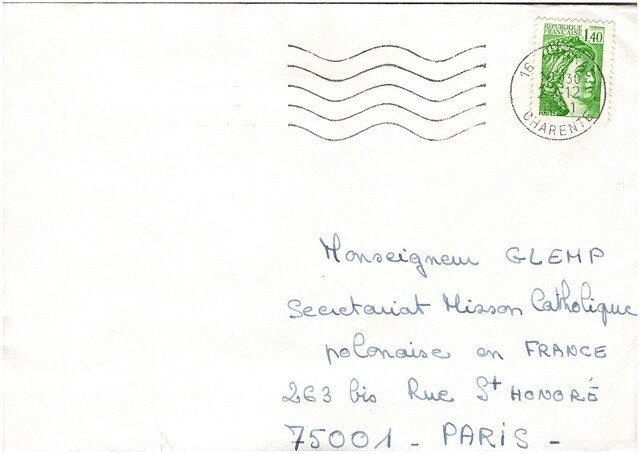 RÉPUBLIQUE
FRANÇAISE
1,40
16
30
12
1
CHARENTE
Monseigneur GLEMP
Secretariat Misson Catholique
polonaise en FRANCE
263 bis Rue St HONORÉ
75001 - PARIS -